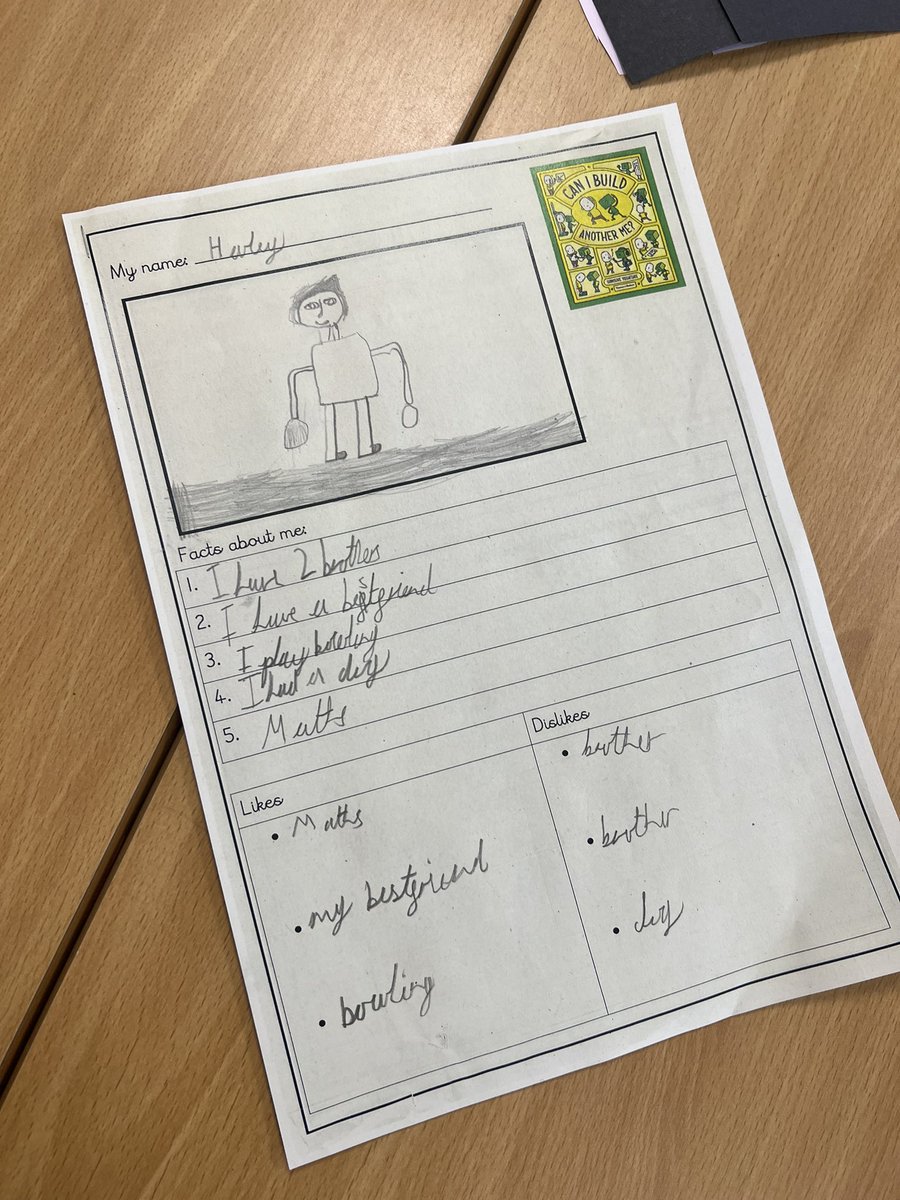 CAN I BUILD
ANOTHER ME?
My name: Harley
Facts about me:
1. I have 2 brothers
2. I have a bestfriend
3. I play bowling
4. I had a dog
5. Maths
Likes
• Maths
• my bestfriend
• bowling
Dislikes
• brother
• brother
• dog